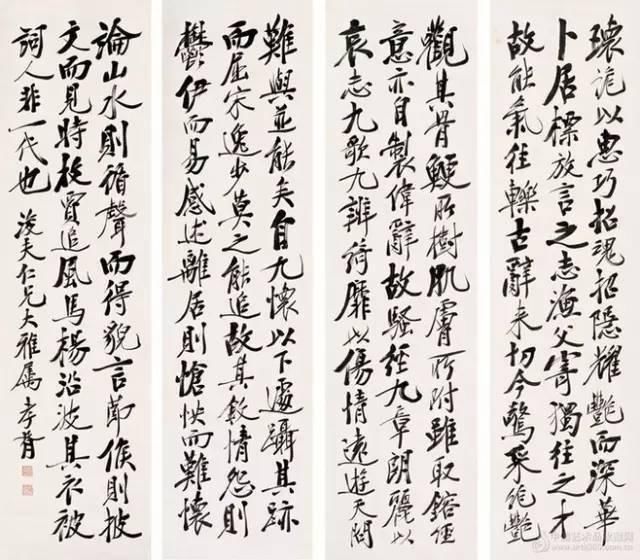 瓌詭以惠巧招魂招隱耀艷而深華
卜居標放言之志漁父寄獨往之才
故能氣往轢古辭来切今驚采絕艷
觀其骨鯁所樹肌膚所附雖取鎔經
意亦自製偉辭故騷經九章朗麗以
哀志九歌九辯綺靡以傷情遠遊天問
難與並能矣自九懷以下遽躡其跡
而屈宋逸步莫之能追故其敘情怨則
鬱伊而易感述離居則愴怏而難懷
論山水則循聲而得貌言節候則披
文而見時枚賈追風馬楊沿波其衣被
詞人非一代也 浚夫仁兄大雅屬 孝胥